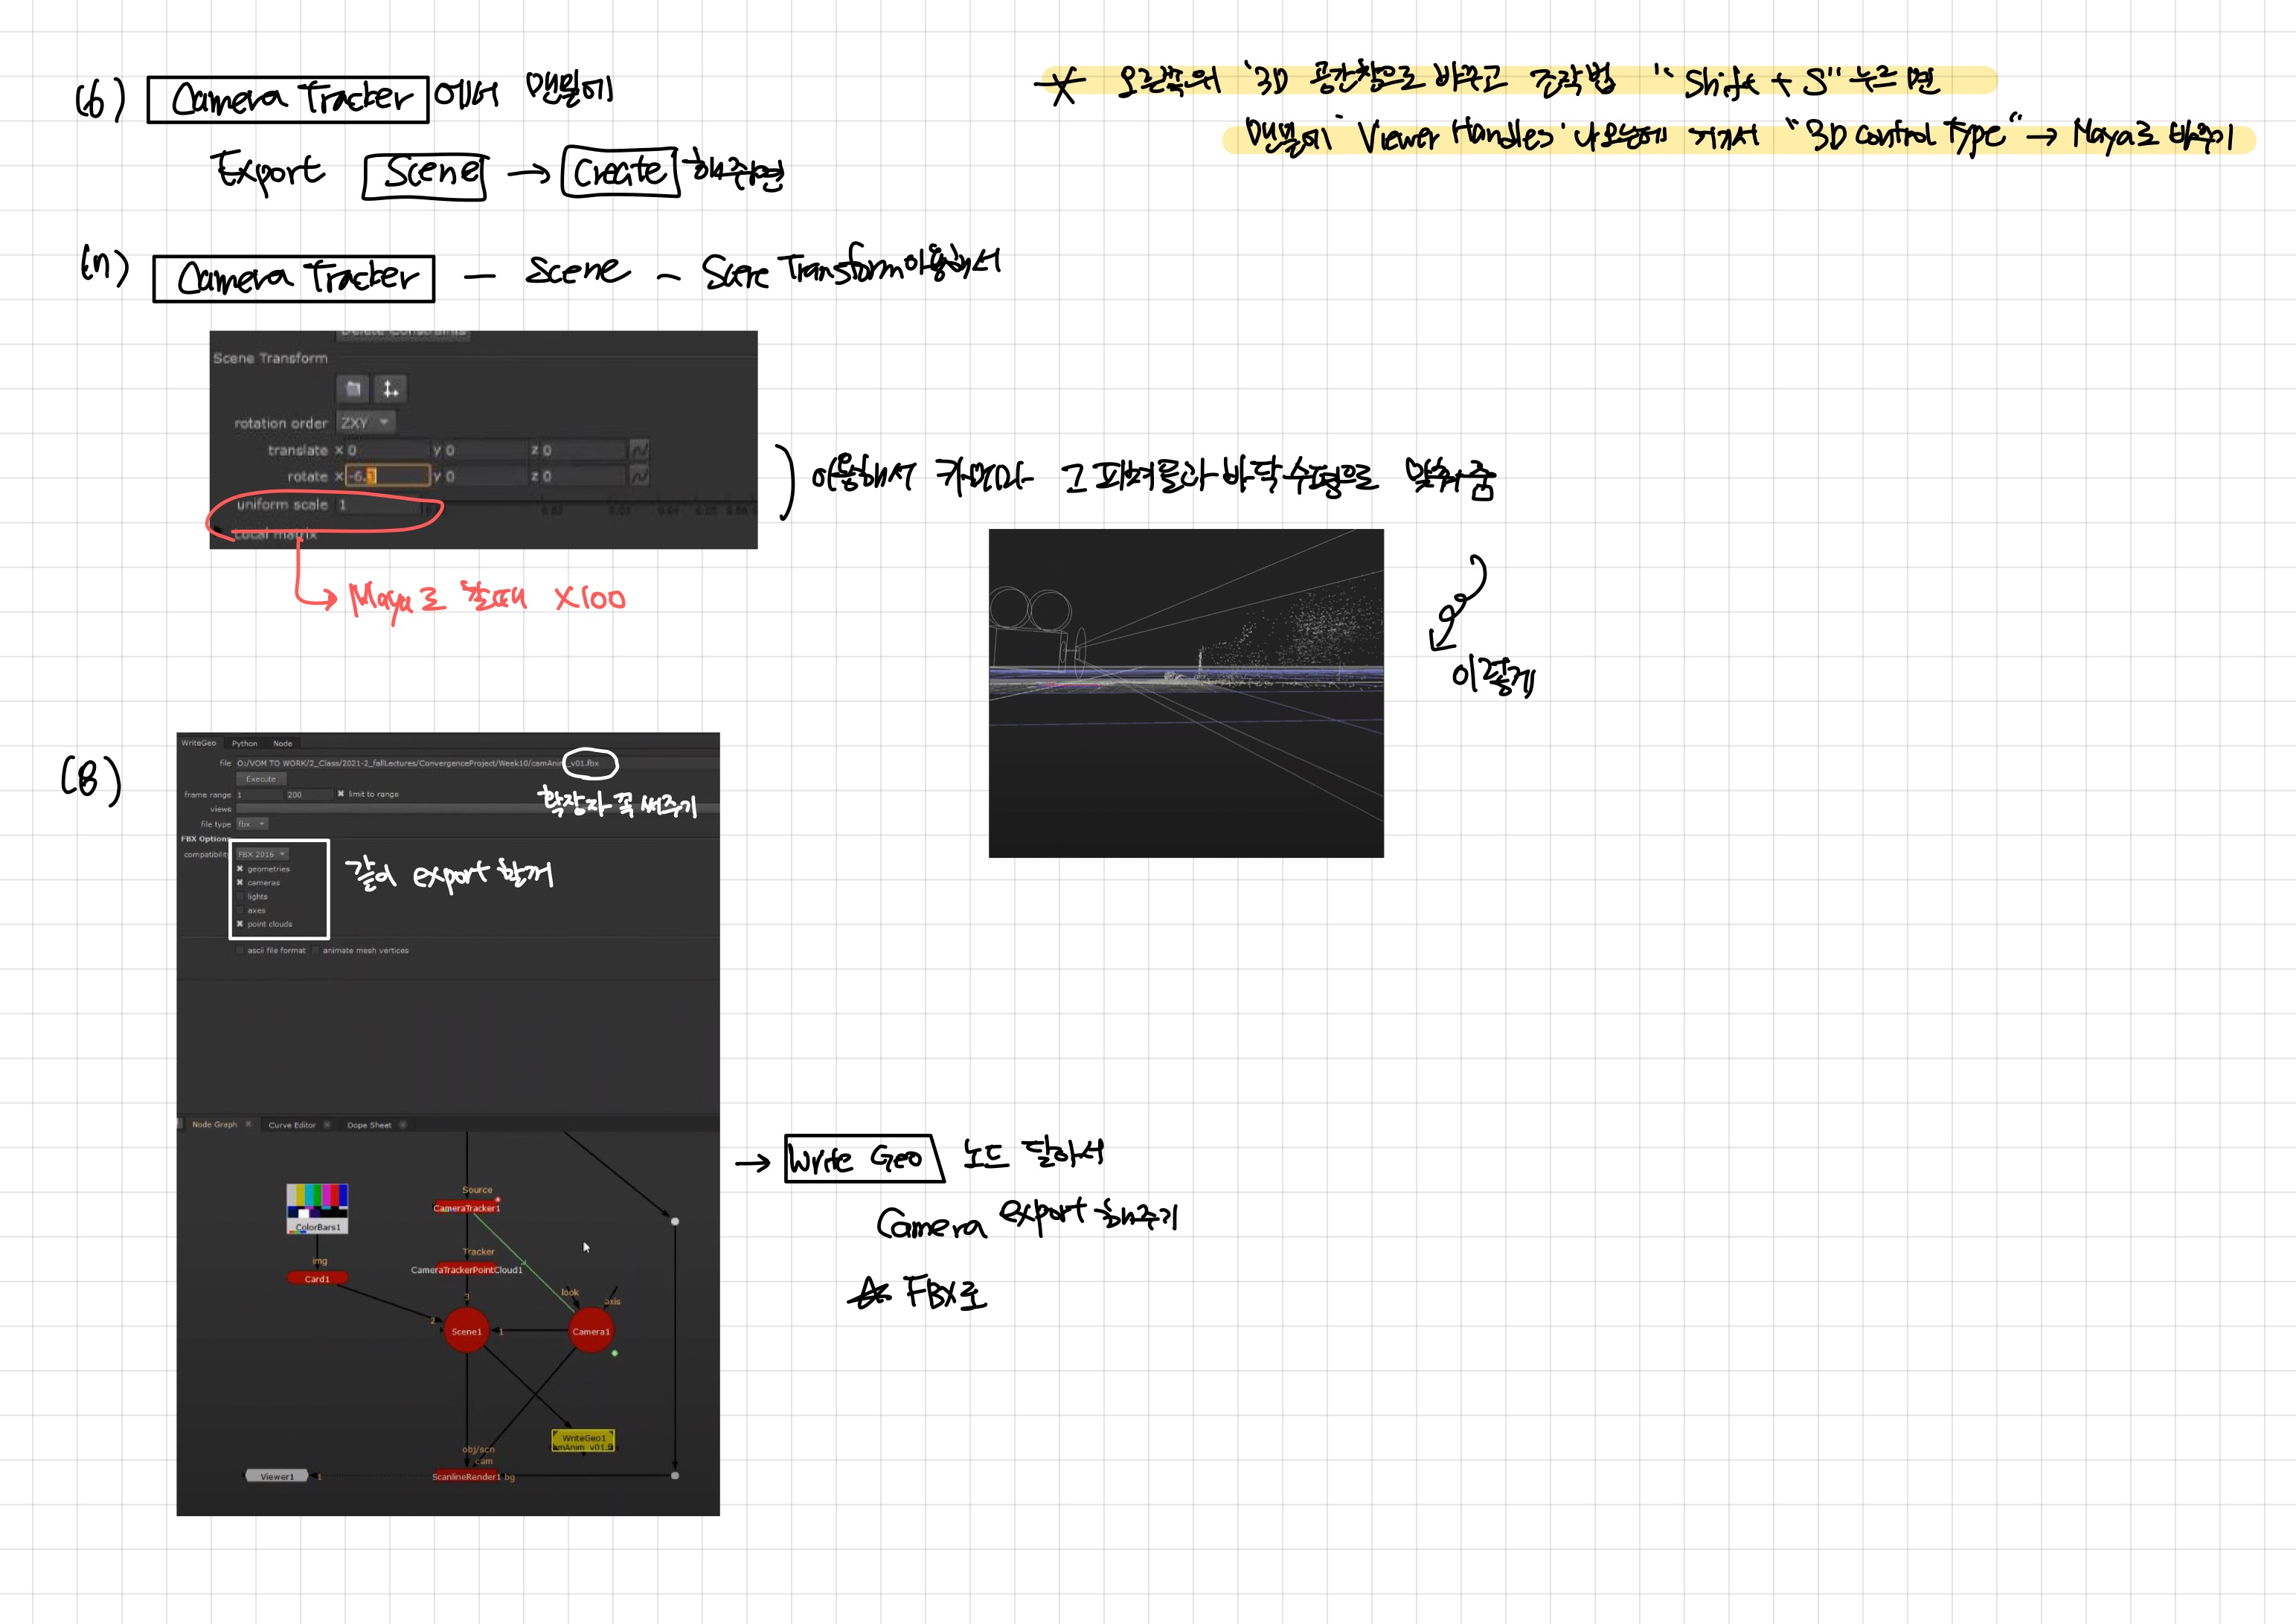 (6) Camera Tracker 에서 맨밑에
Export Scene → Create 해주면
* 오른쪽위 '3D 공간창으로 바꾸고 조작법 "Shift + S" 누르면
맨밑에 Viewer Handles' 나오는데 거기서 "3D control Type" → Maya로 바꾸기
(7) Camera Tracker — Scene — Scene Transform 이용해서
Delete Constraints
Scene Transform
rotation order ZXY
translate x 0 y 0 z 0
rotate x -6. y 0 z 0
uniform scale 1
Local matrix
→ Maya로 갈때 X100
이용해서 카메라 그 피벗들과 바닥 수평으로 맞춰줌
이렇게
(8)
WriteGeo Python Node
file O:/VOM TO WORK/2_Class/2021-2_fallLectures/ConvergenceProject/Week10/camAnim_v01.fbx
Execute
확장자 꼭 써주기
frame range 1 200 limit to range
views
file type fbx
FBX Options
compatibility FBX 2016
geometries
cameras
lights
axes
point clouds
같이 export 할꺼
ascii file format animate mesh vertices
Node Graph Curve Editor Dope Sheet
ColorBars1
img
Card1
Source
CameraTracker1
Tracker
CameraTrackerPointCloud1
3
look
axis
2
Scene1
1
Camera1
WriteGeo1
amAnim_v01.fb
obj/scn
cam
Viewer1
1
ScanlineRender1
bg
→ Write Geo 노드 달아서
Camera export 해주기
☆ FBX로